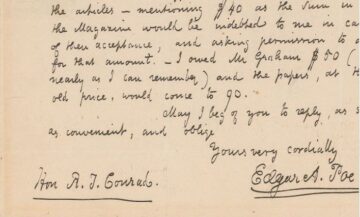 the articles — mentioning $40 as the sum in
the Magazine would be indebted to me in ca
of their acceptance, and asking permission to
for that amount. — I owed Mr Graham $50 (
nearly as I can remember) and the papers, at th
old price, would come to 90.
May I beg of you to reply, as s
as convenient, and oblige
Yours very cordially
Edgar A. Poe
Hon R. T. Conrad.